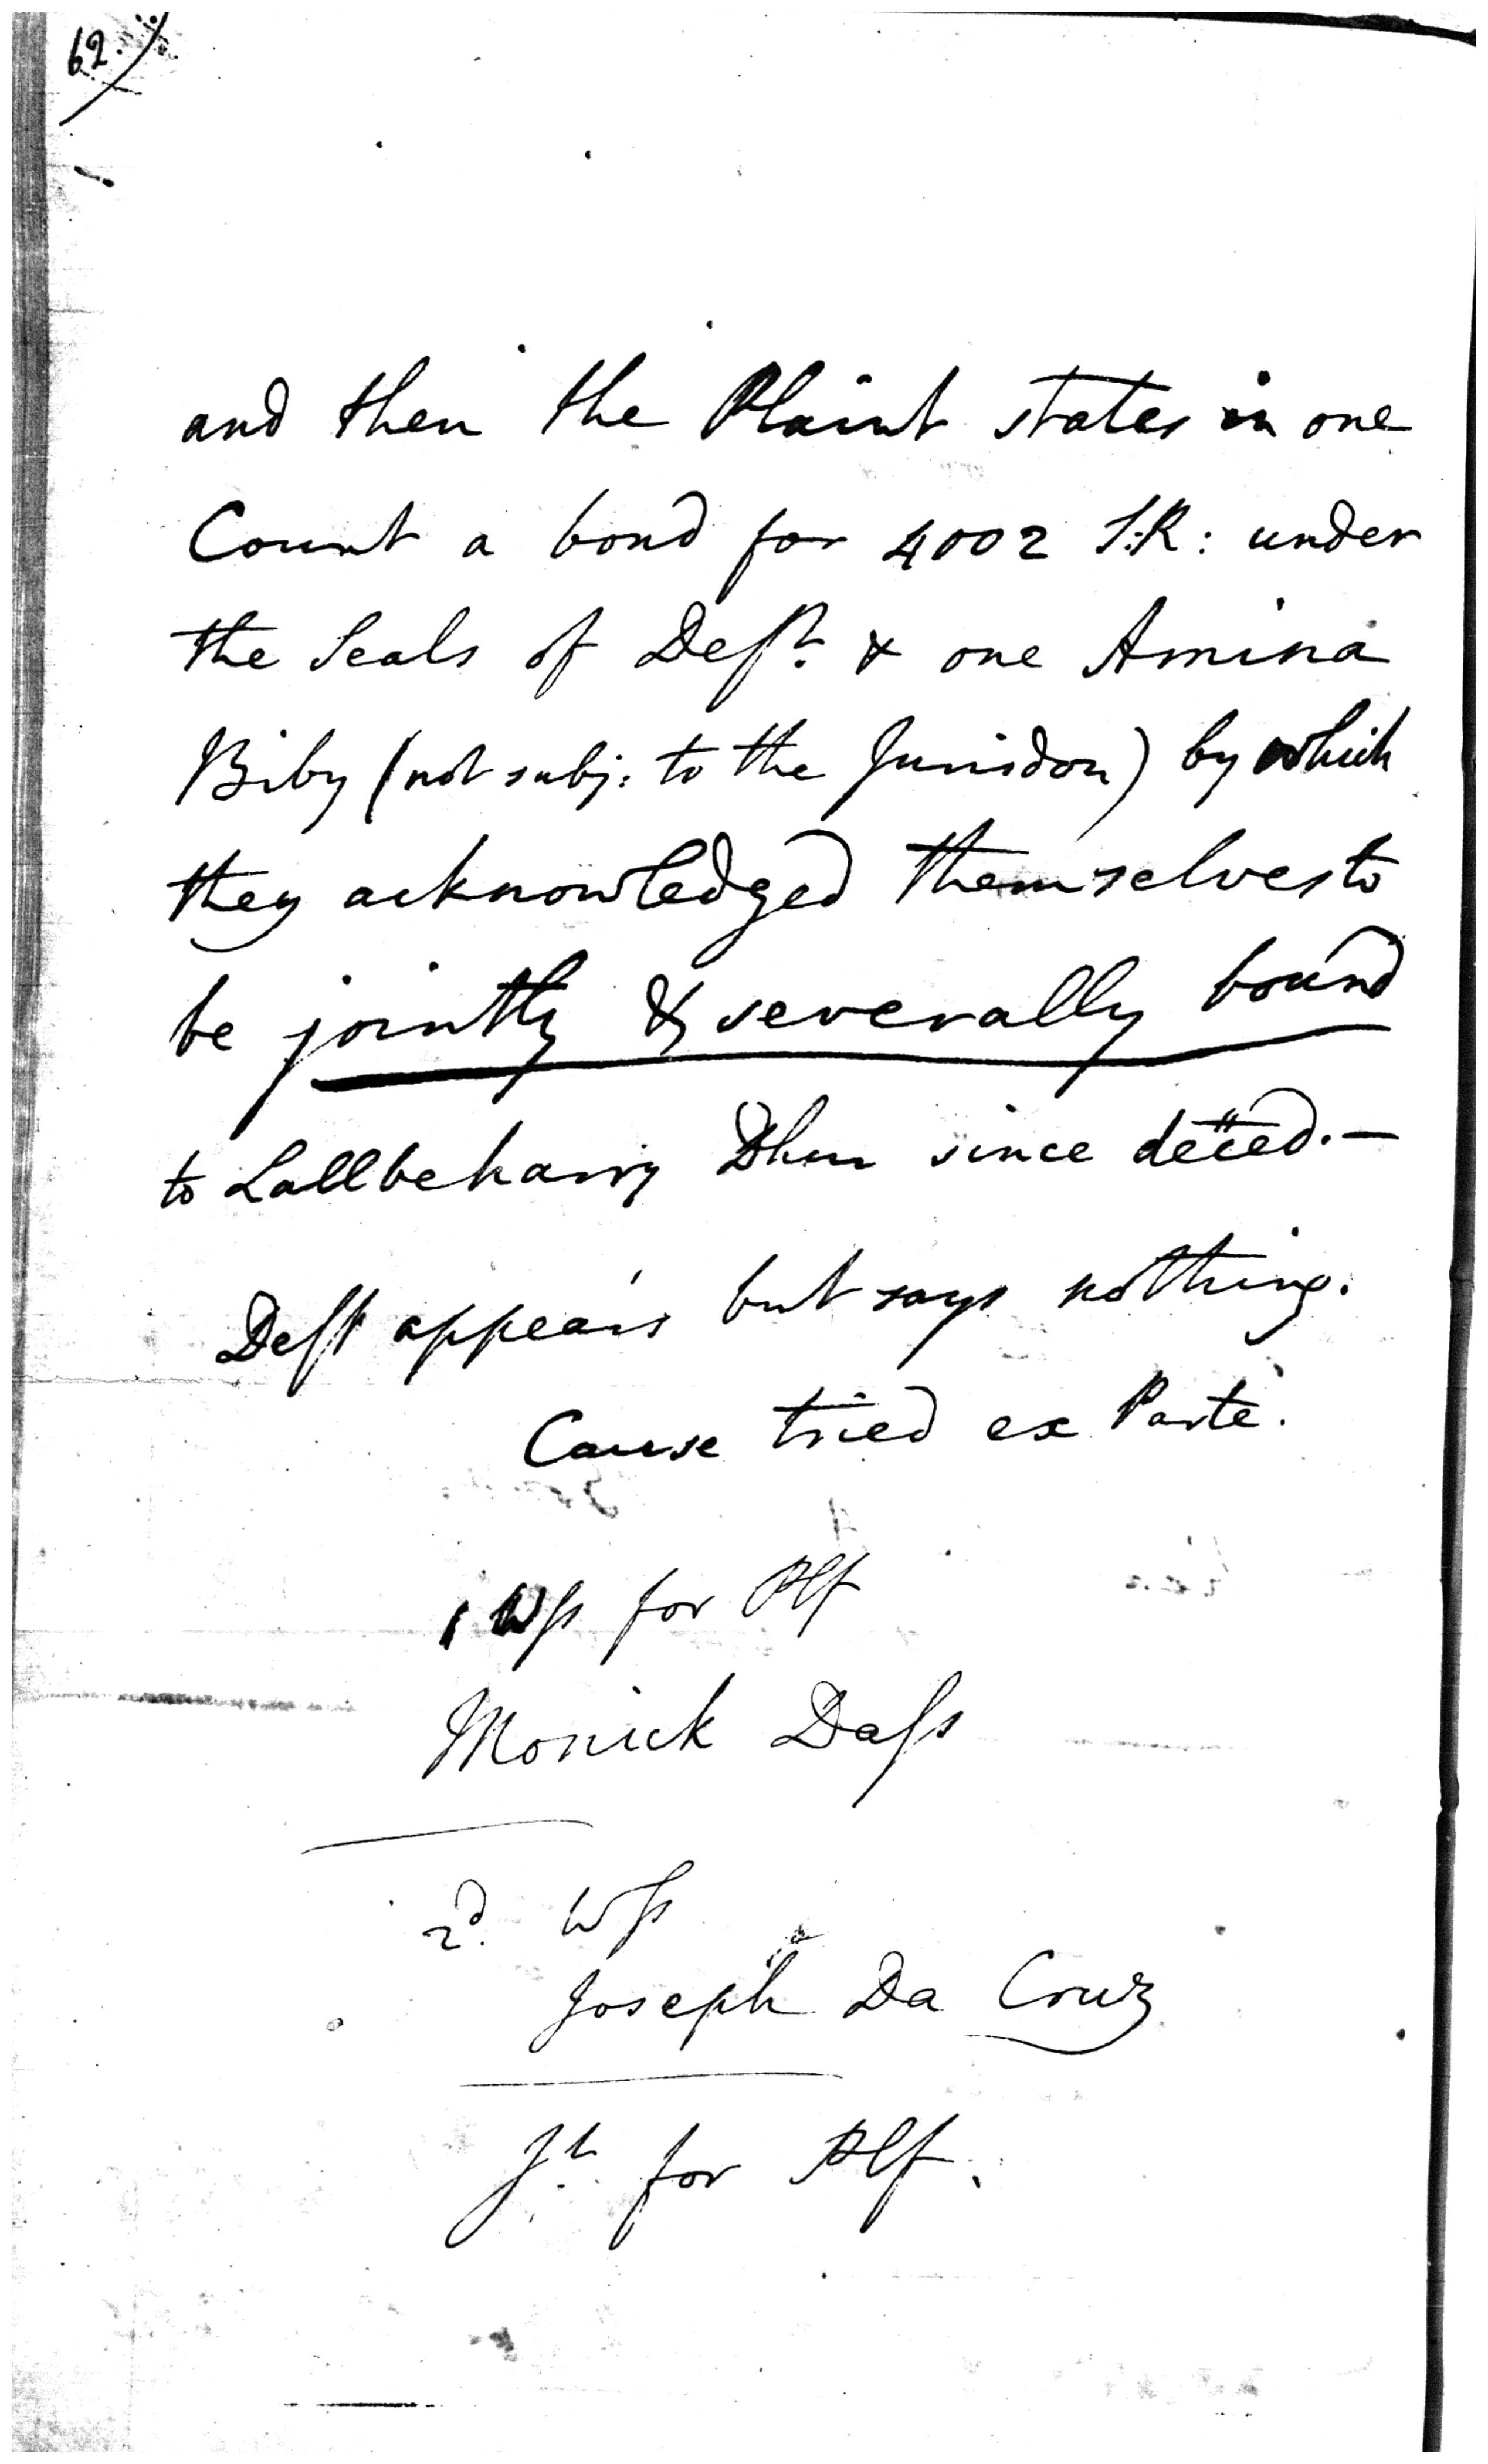 62.
and then the Plaint states in one
Count a bond for 4002 S.R: under
the Seals of Deft. & one Amina
Biby (not subj: to the Jurisdon) by which
they acknowledged themselves to
be jointly & severally bound
to Lallbeharry Dhur since deced. —
Deft appears but says nothing.
Cause tried ex Parte.
1 Wss for Plf
Monick Dass
2d. Wss
Joseph Da Cruz
Jt. for Plf.